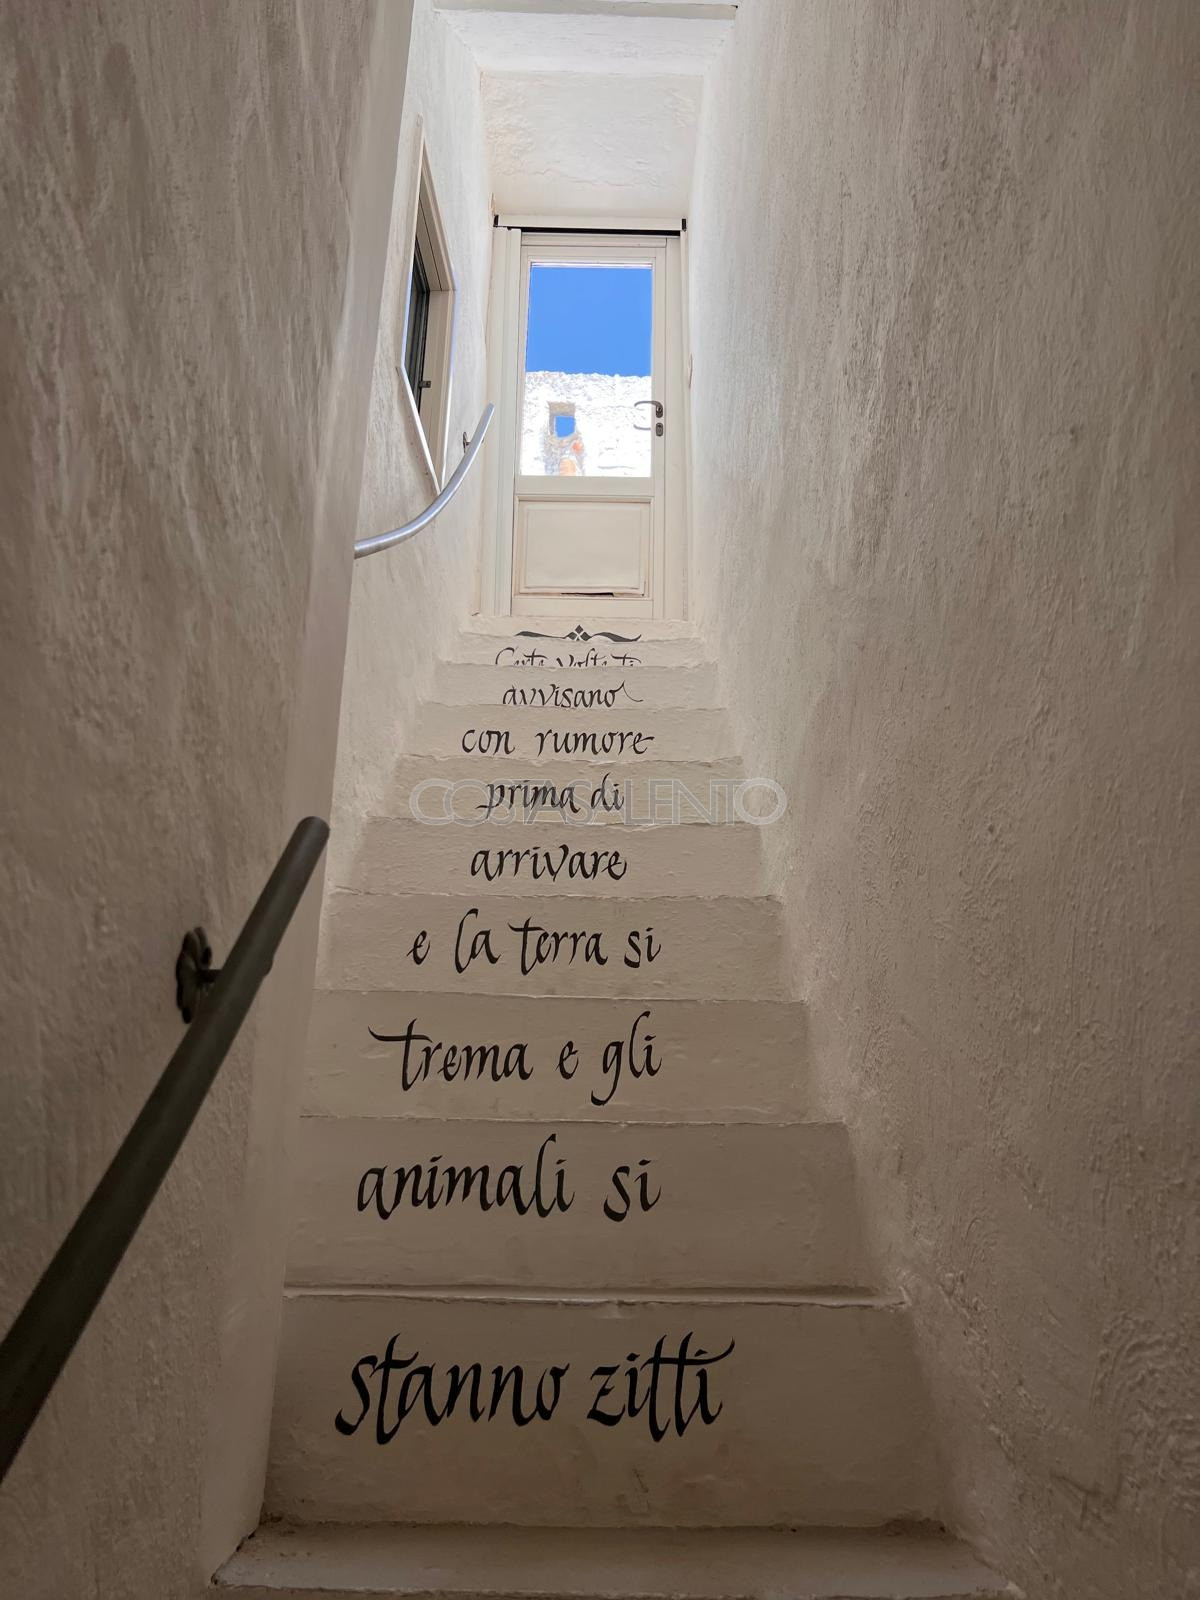 Certe volte ti
avvisano
con rumore
prima di
COSTASALENTO
arrivare
e la terra si
trema e gli
animali si
stanno zitti